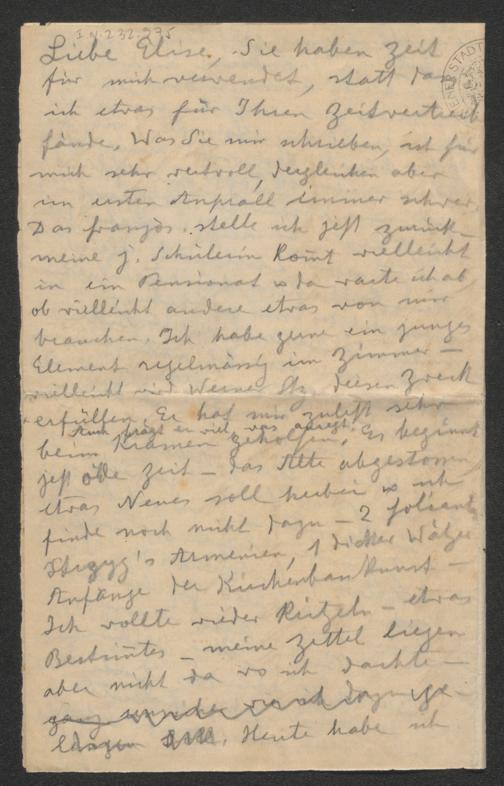 I.N. 232.235
Liebe Elise, Sie haben Zeit
für mich verwendet, statt dass
ich etwas für Ihren Zeitvertreib
fände. Was Sie mir schrieben, ist für
mich sehr wertvoll, dergleichen aber
im ersten Anprall immer schwer.
Das französ. stelle ich jetzt zurück –
meine j. Schülerin kom̄t vielleicht
in ein Pensionat u da warte ich ab,
ob vielleicht andere etwas von mir
brauchen. Ich habe gerne ein junges
Element regelmässig im Zimmer –
vielleicht wird Werner diesen Zweck
erfüllen. Er hat mir zuletzt sehr
Auch frägt er viel, was anregt.
beim Kramen geholfen. Es beginnt
jetzt öde Zeit – das Alte abgestossen,
etwas Neues soll herbei u ich
finde noch nicht dazu – 2 Foliant
Strzyg's Armenien, 1 dicker Wälzer
Anfänge der Kirchenbaukunst –
Ich wollte wieder kritzeln – etwas
Bestim̄tes – meine Zettel liegen
aber nicht da wo ich dachte –
ganz
Heute habe ich